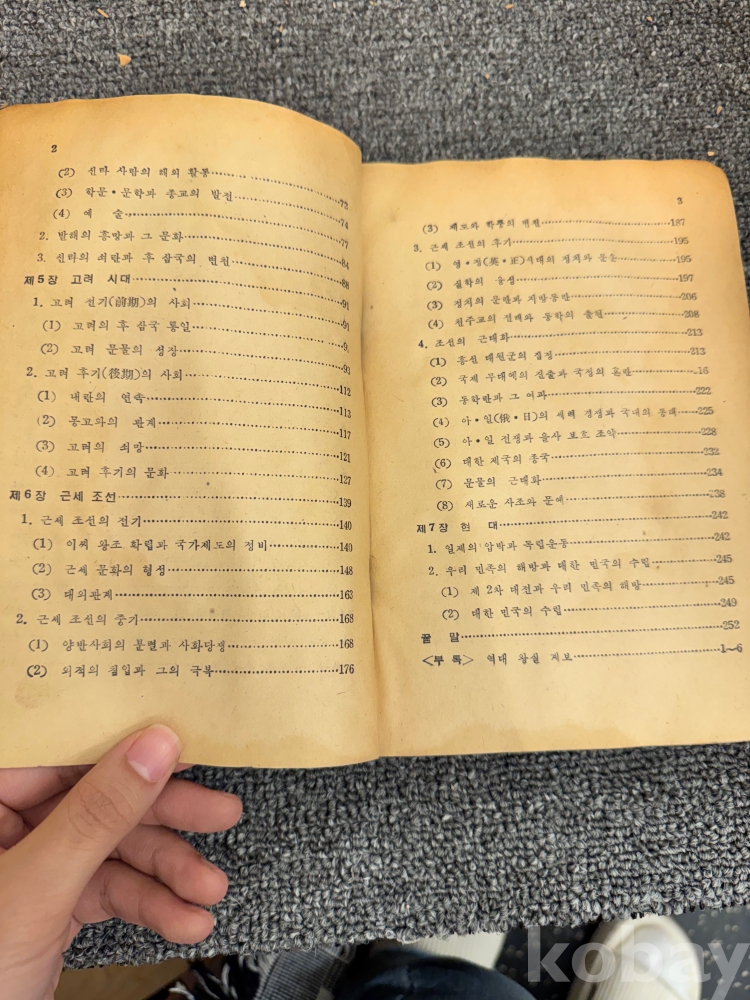 2
(2) 신라 사람의 해외 활동
(3) 학문·문학과 종교의 발전 72
(4) 예 술 74
2. 발해의 흥망과 그 문화 77
3. 신라의 쇠란과 후 삼국의 변천 84
제5장 고려 시대 88
1. 고려 전기(前期)의 사회 91
(1) 고려의 후 삼국 통일 91
(2) 고려 문물의 성장 9
2. 고려 후기(後期)의 사회 93
(1) 내란의 연속 112
(2) 몽고와의 관계 113
(3) 고려의 쇠망 117
(4) 고려 후기의 문화 121
127
제6장 근세 조선 139
1. 근세 조선의 전기 140
(1) 이씨 왕조 확립과 국가제도의 정비 140
(2) 근세 문화의 형성 148
(3) 대외관계 163
2. 근세 조선의 중기 168
(1) 양반사회의 분렬과 사화당쟁 168
(2) 외적의 침입과 그의 극복 176
3
(3) 제도와 학풍의 변천 187
3. 근세 조선의 후기 195
(1) 영·정(英·正)시대의 정치와 문물 195
(2) 실학의 융성 197
(3) 정치의 문란과 지방동반 206
(4) 천주교의 전래와 동학의 출현 208
4. 조선의 근대화 213
(1) 흥선 대원군의 집정 213
(2) 국제 무대에의 진출과 국정의 혼란 16
(3) 동학란과 그 여파 222
(4) 아·일(俄·日)의 세력 경쟁과 국내의 동태 225
(5) 아·일 전쟁과 을사 보호 조약 228
(6) 대한 제국의 종국 232
(7) 문물의 근대화 234
(8) 새로운 사조와 문예 238
제7장 현 대 242
1. 일제의 압박과 독립운동 242
2. 우리 민족의 해방과 대한 민국의 수립 245
(1) 제 2차 대전과 우리 민족의 해방 245
(2) 대한 민국의 수립 249
끝 말 252
<부 록> 역대 왕실 계보 1~6
kobay